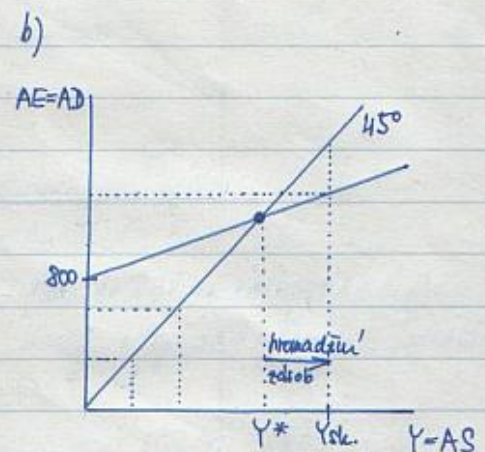 b)
AE=AD
45°
800
hromadění
zásob
Y*
Ysk.
Y=AS